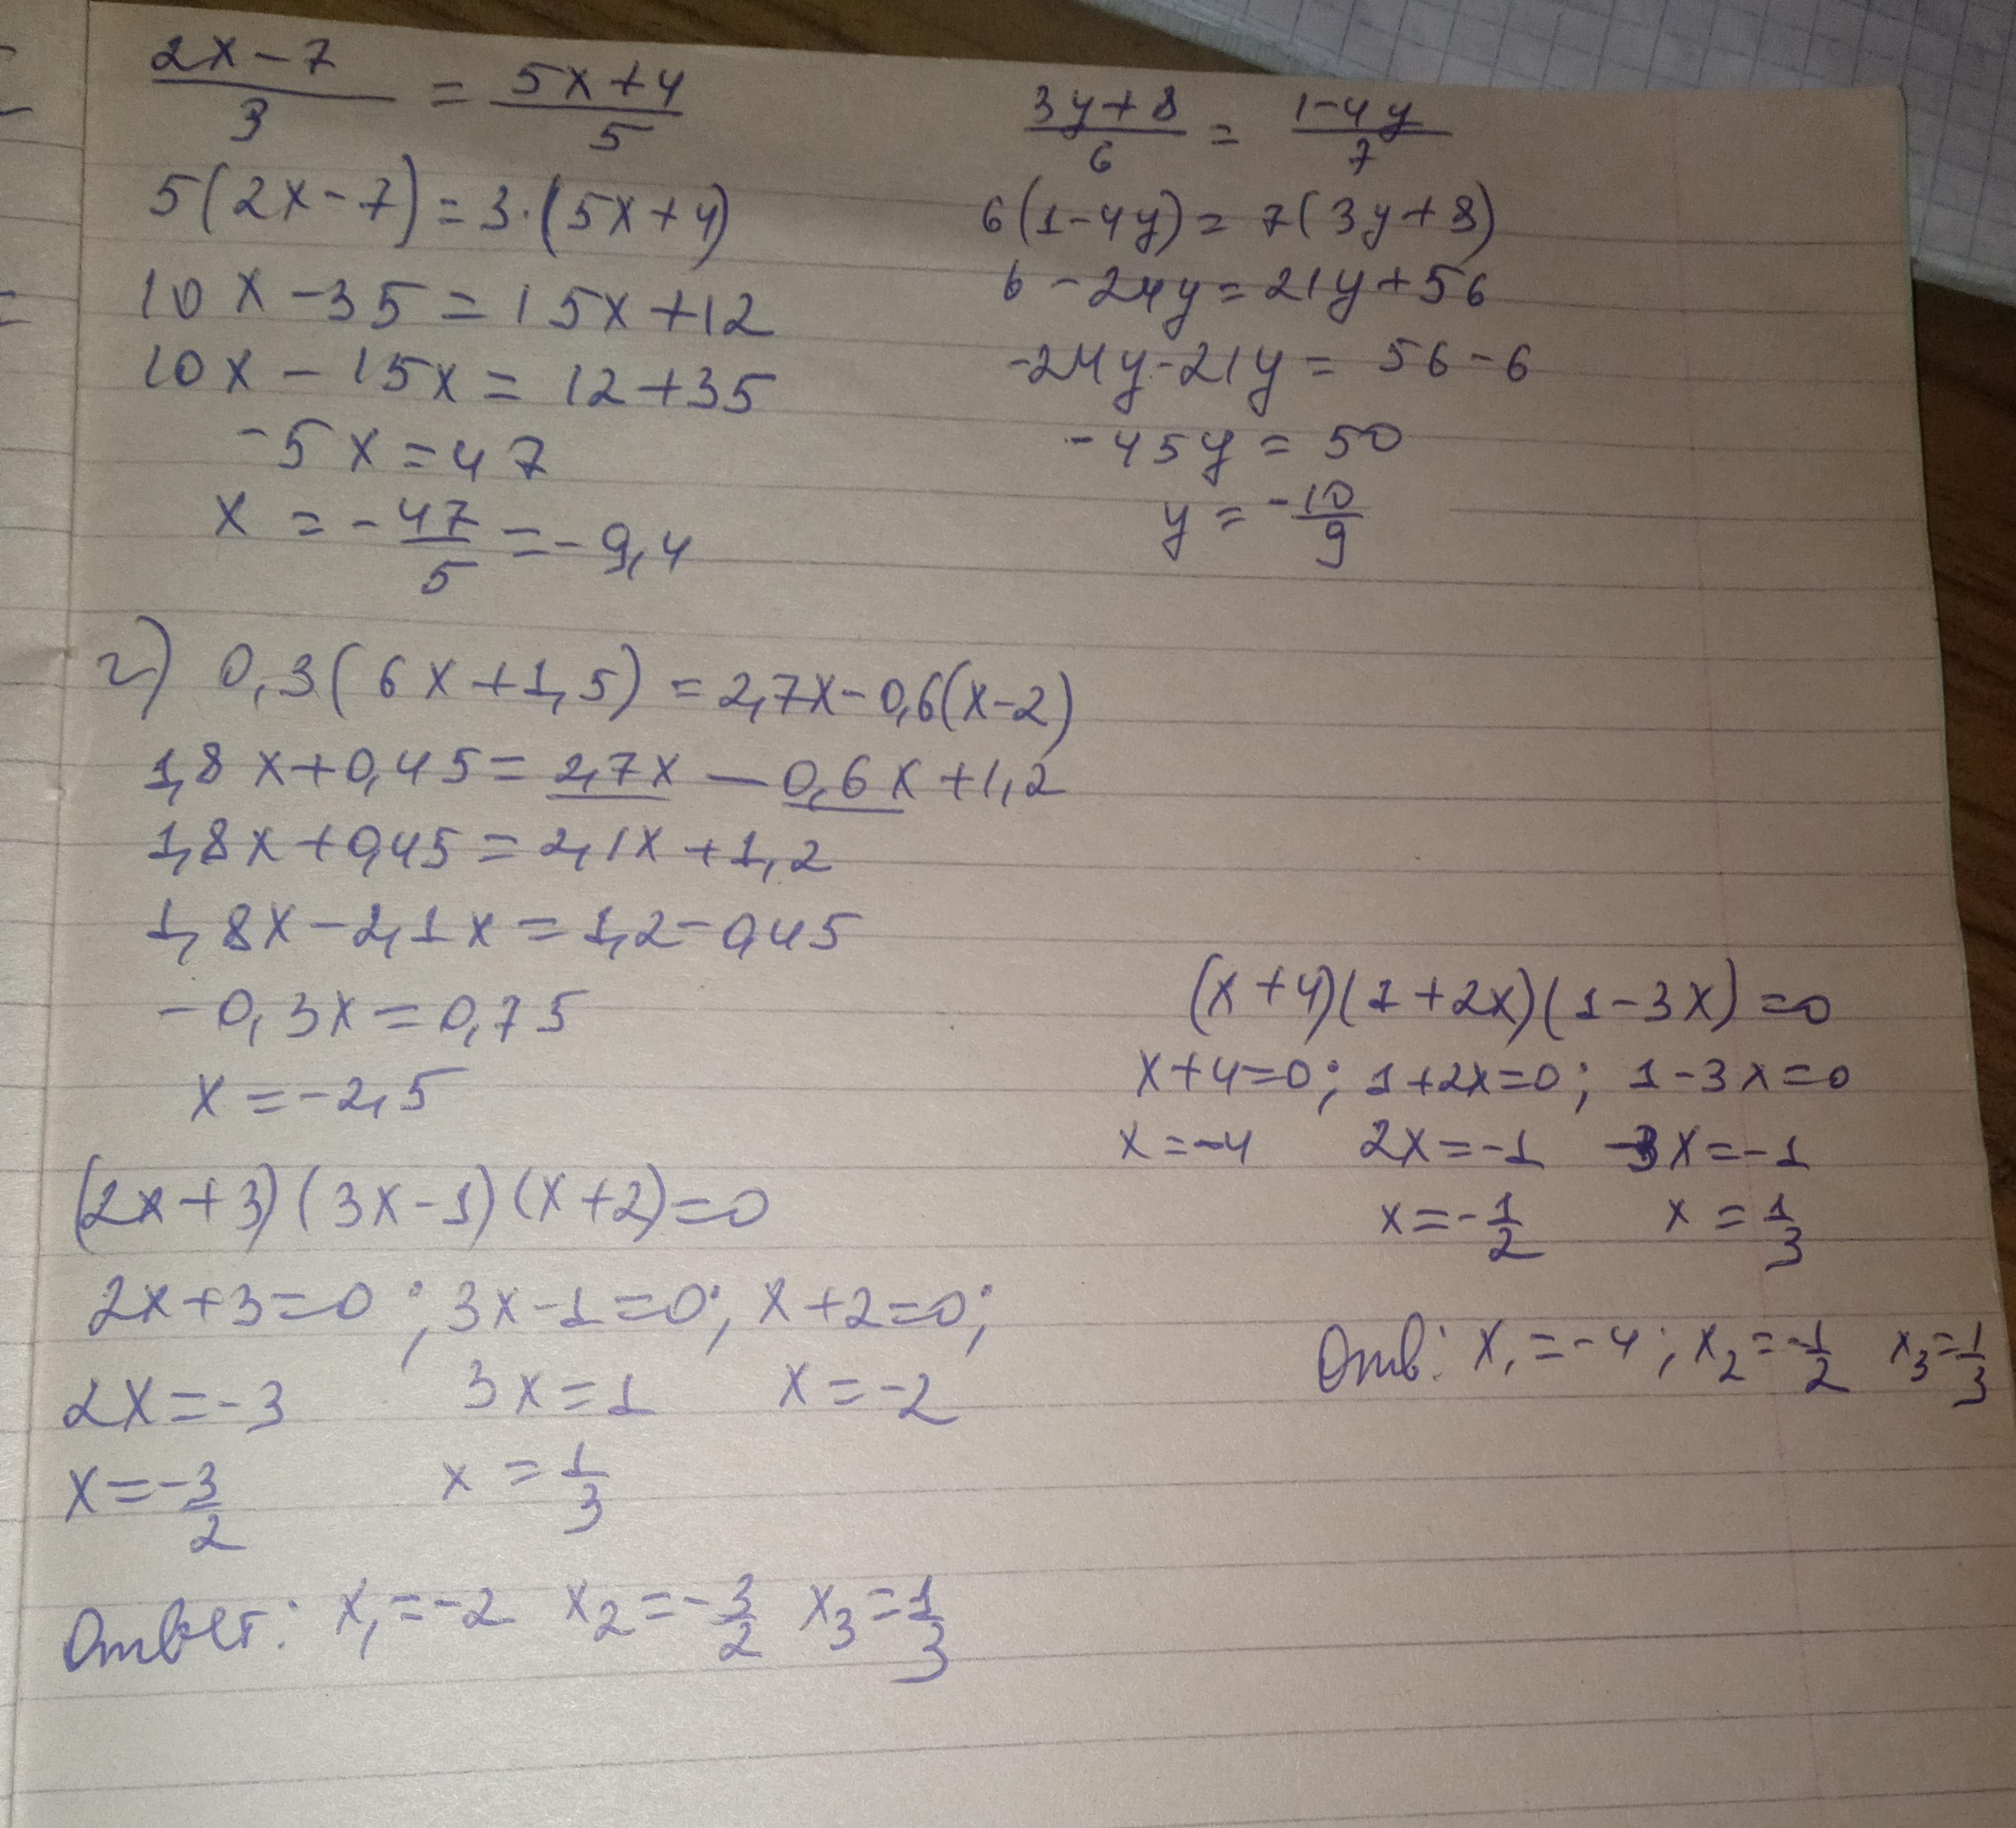 2x-7/3 = 5x+4/5
5(2x-7)=3·(5x+4)
10x-35=15x+12
10x-15x=12+35
-5x=47
x=-47/5=-9,4
3y+8/6 = 1-4y/7
6(1-4y)=7(3y+8)
6-24y=21y+56
-24y-21y=56-6
-45y=50
y=-10/9
г) 0,3(6x+1,5)=2,7x-0,6(x-2)
1,8x+0,45=2,7x-0,6x+1,2
1,8x+0,45=2,1x+1,2
1,8x-2,1x=1,2-0,45
-0,3x=0,75
x=-2,5
(2x+3)(3x-1)(x+2)=0
2x+3=0; 3x-1=0; x+2=0;
2x=-3 3x=1 x=-2
x=-3/2 x=1/3
Ответ: x₁=-2 x₂=-3/2 x₃=1/3
(x+4)(1+2x)(1-3x)=0
x+4=0; 1+2x=0; 1-3x=0
x=-4 2x=-1 -3x=-1
x=-1/2 x=1/3
Отв: x₁=-4; x₂=-1/2 x₃=1/3